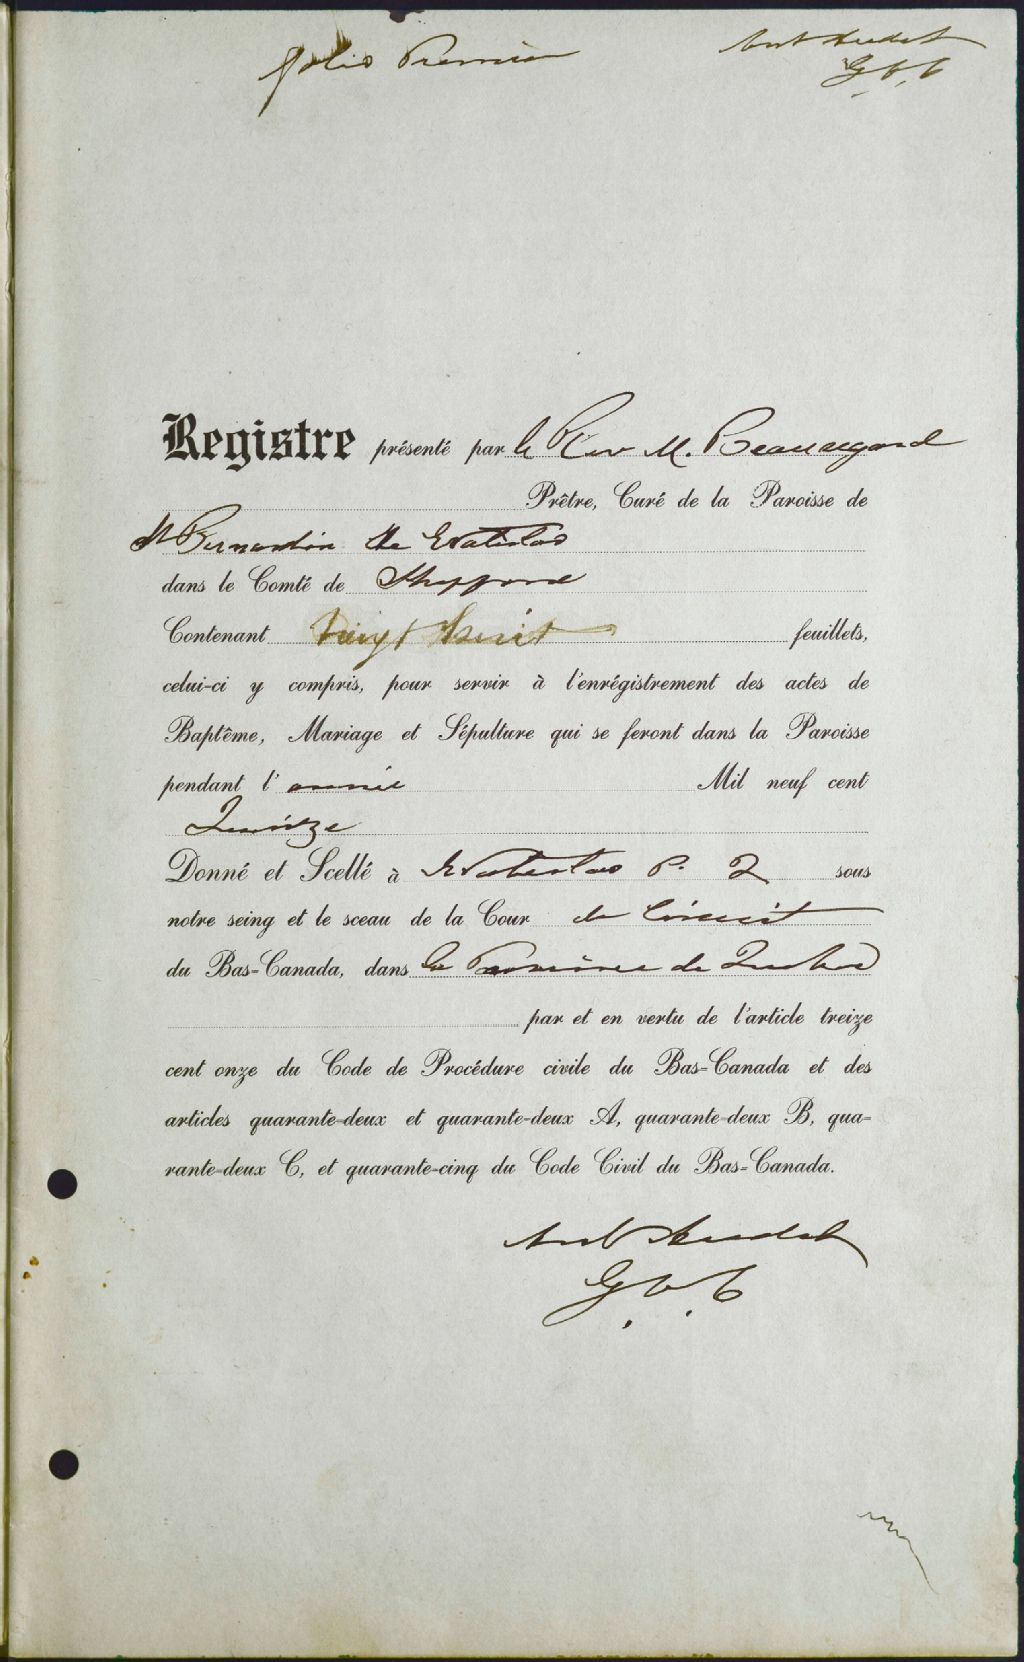 folio Premier
Registre présenté par le Rév M. Beauregard
Prêtre, Curé de la Paroisse de
St Bernardin de Waterloo
dans le Comté de Shefford
Contenant Vingt huit feuillets,
celui-ci y compris, pour servir à l'enrégistrement des actes de
Baptême, Mariage et Sépulture qui se feront dans la Paroisse
pendant l'année Mil neuf cent
Quinze
Donné et Scellé à Waterloo P. Q sous
notre seing et le sceau de la Cour de Circuit
du Bas-Canada, dans la Province de Quebec
par et en vertu de l'article treize
cent onze du Code de Procédure civile du Bas-Canada et des
articles quarante-deux et quarante-deux A, quarante-deux B, qua-
rante-deux C, et quarante-cinq du Code Civil du Bas-Canada.